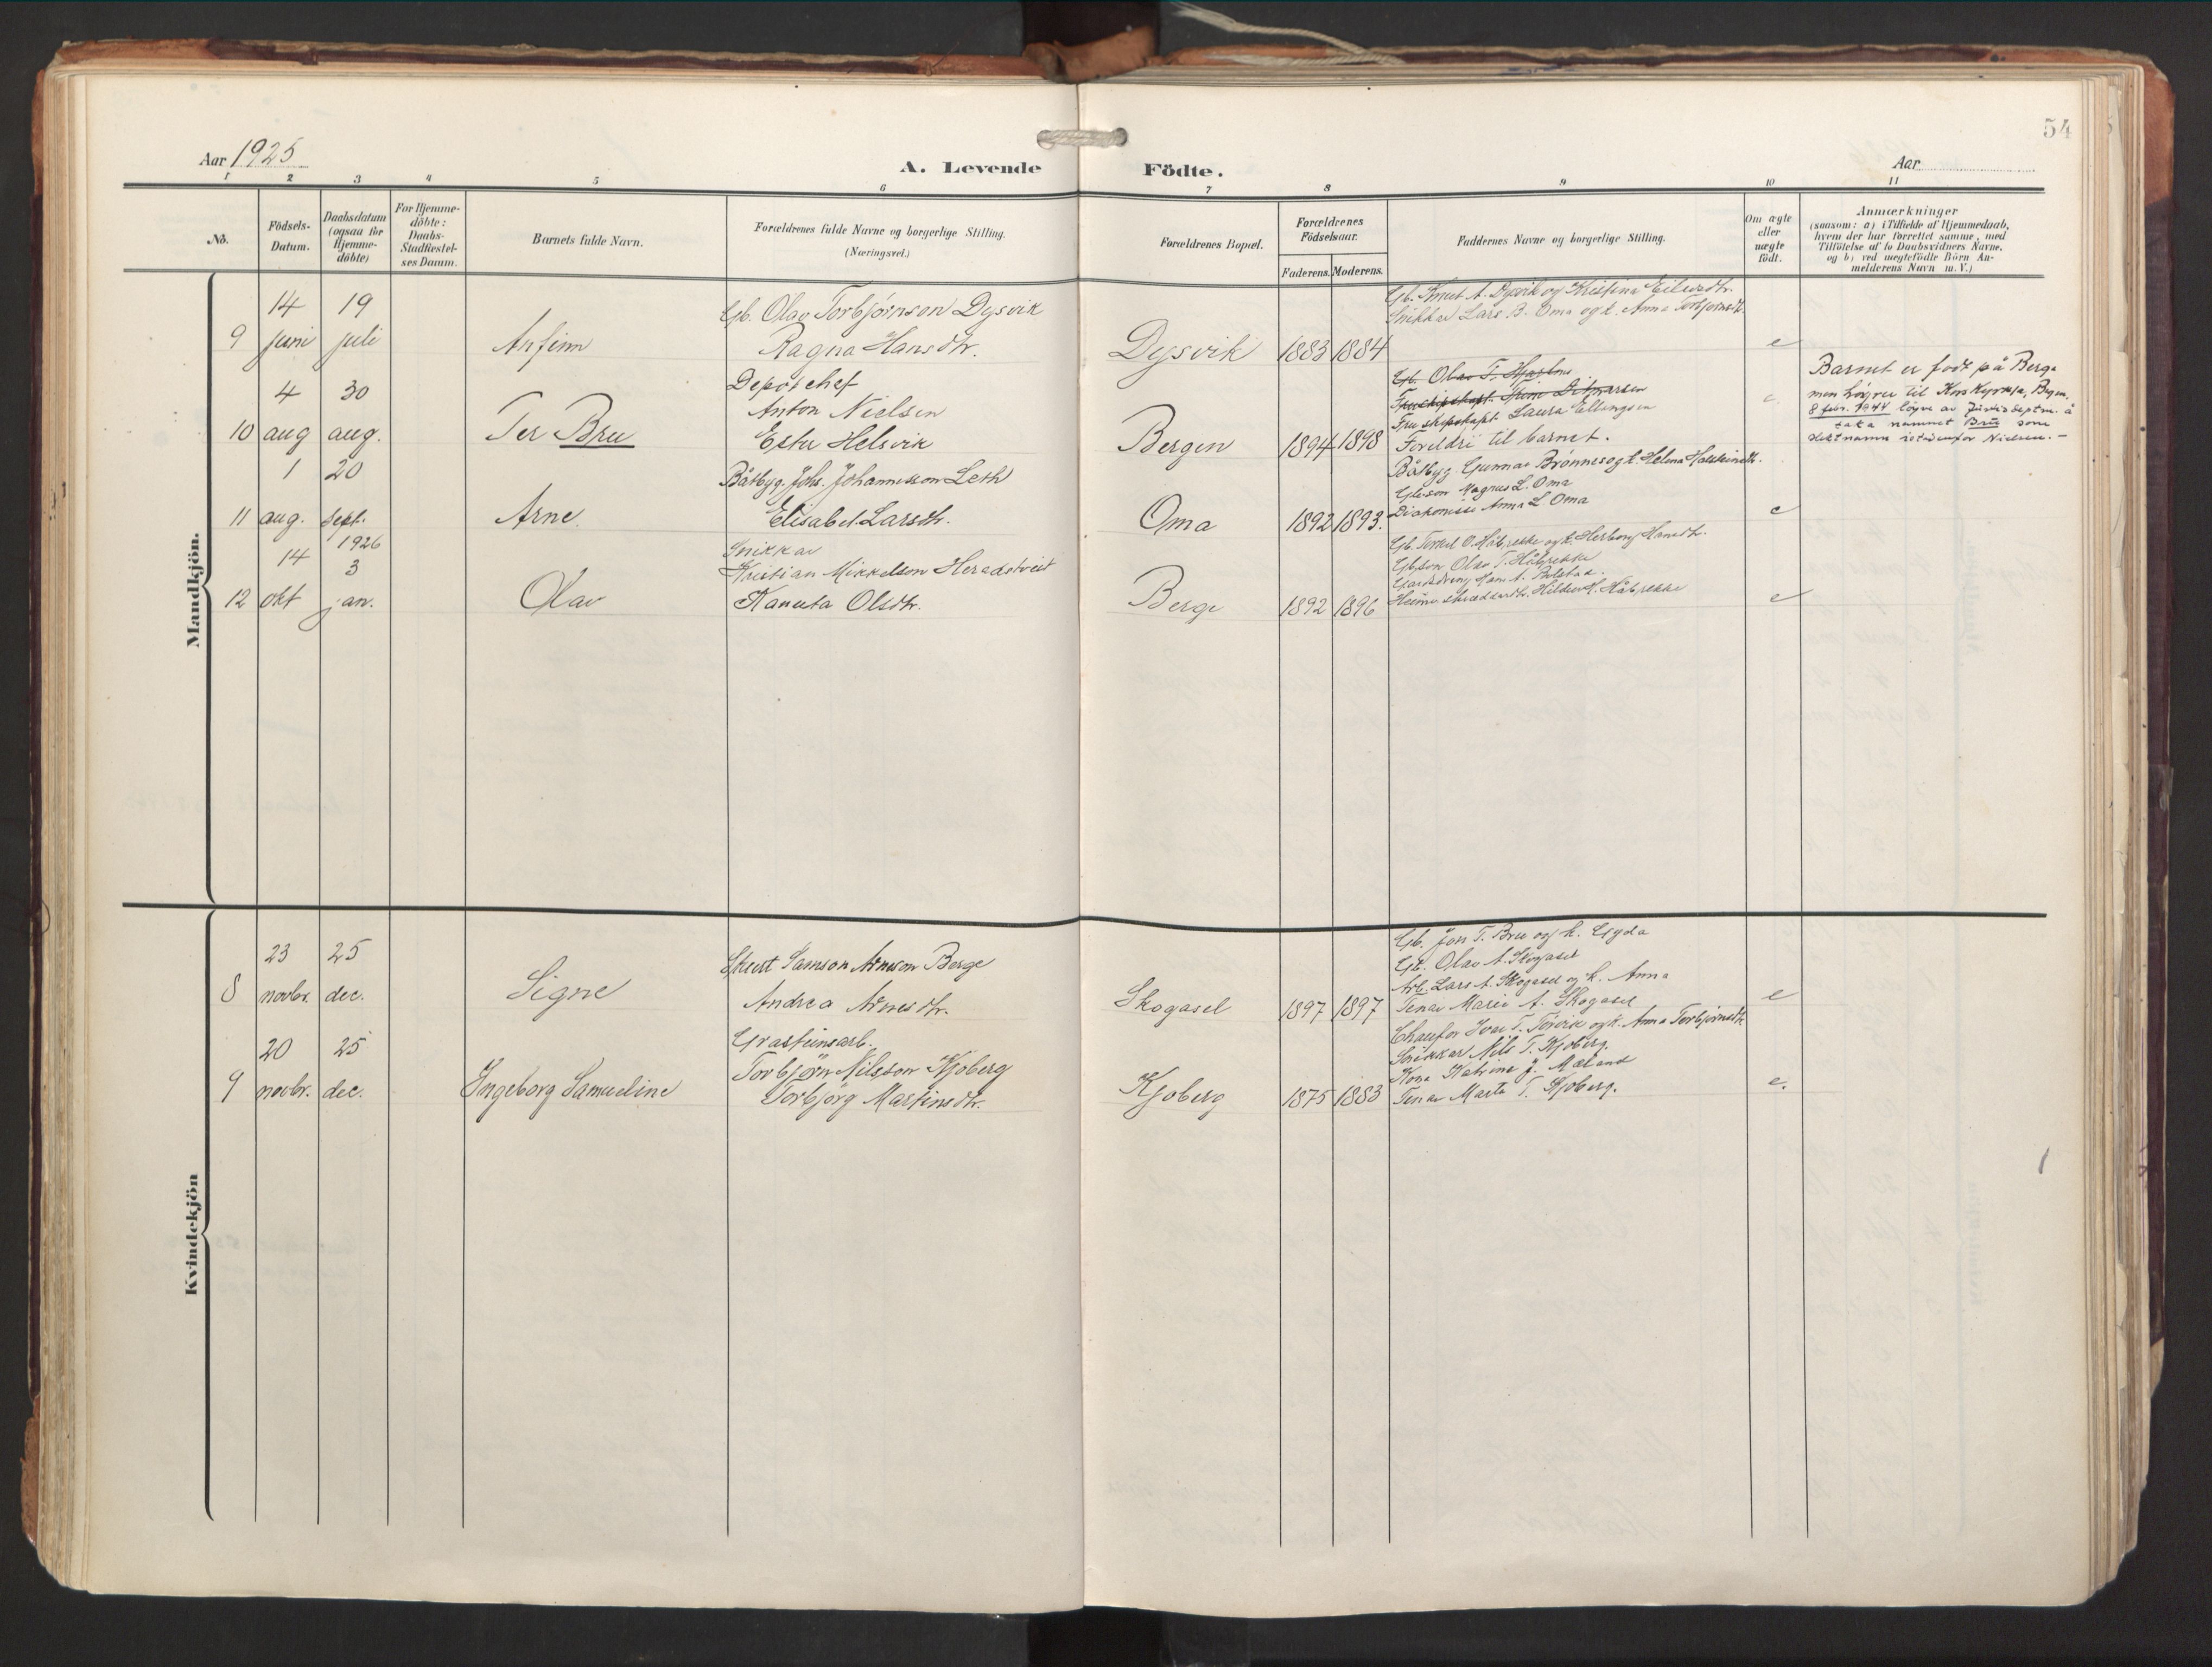 54
Aar 1925
A. Levende Födte.
Aar
1 2 3 4 5 6 7 8 9 10 11
No.
Födsels-
Datum.
Daabsdatum
(ogsaa for
Hjemme-
döbte)
For Hjemme-
döbte:
Daabs-
Stadfæstel-
ses Datum.
Barnets fulde Navn.
Forældrenes fulde Navne og borgerlige Stilling.
(Næringsvei.)
Forældrenes Bopæl.
Forældrenes
Födselsaar.
Faderens. Moderens.
Faddernes Navne og borgerlige Stilling.
Om ægte
eller
uægte
födt.
Anmærkninger
(saasom: a) i Tilfælde af Hjemmedaab,
hvem der har forrettet samme, med
Tilföielse af to Daabsvidners Navne,
og b) ved uegtefödte Börn An-
melderens Navn m. V.)
Mandkjön.
14 19
9 juni juli
Anfinn
Gb. Olav Torbjørnson Dysvik
Ragna Hansdtr.
Dysvik 1883 1884
Gb. Knut A. Dysvik og Kristina Eilivsdtr.
Snikkar Lars B. Oma og k. Anna Torbjørnsdtr.
e
4 30
10 aug aug.
Per Bru
Depotchef
Anton Nielsen
Ester Helsvik
Bergen 1894 1898
Gb. Olav T.
Fru skipskapt.
Fru skipskapt. Laura Ellingsen
Foreldri til barnet.
e
Barnet er født på Berge
men høyrer til Kors Kyrkja, Bergen.
8 febr. 1944 løyve av Justisdeptm. å
taka namnet Bru som
slektnamn istadenfor Nielsen. –
1 20
11 aug. sept.
Arne
Båtbyg. Johs. Johannesson Leth
Elisabet Larsdtr.
Oma 1892 1893.
Båtbyg. Gunnar Brønnes og k. Helena Halsteinsdtr.
Gb.son Magnus L. Oma
Diakonisse Anna L. Oma
e
1926
14 3
12 okt jan.
Olav
Snikkar
Kristian Mikkelson Heradstveit
Kanuta Olsdtr.
Berge 1892 1896
Gb. Torkel O. Håbrekke og k. Herborg Hansdtr.
Gbson Olav T. Håbrekke
Gardsdreng Hans A. Bolstad.
Heimeverande Hilda H. Håbrekke
e
Kvindekjön
23 25
8 novbr. dec.
Signe
Skurt Samson Arneson Berge
Andrea Arnesdtr.
Skogasel 1897 1897
Gb. Jon T. Bru og k. Gyda
Gb. Olav A. Skogasel
Arb. Lars A. Skogasel og k. Anna
Tenar Marie A. Skogasel
e
20 25
9 novbr. dec.
Ingeborg Samueline
Gråsteinsarb.
Torbjörn Nilsson Kjoberg
Torbjörg Martinsdtr.
Kjoberg 1875 1883
Chaufør Ivar T. Tørvik og k. Anna Torbjørnsdtr.
Snikkar Nils T. Kjoberg.
Kona Katrina J. Mæland
Tenar Marta T. Kjoberg.
e.